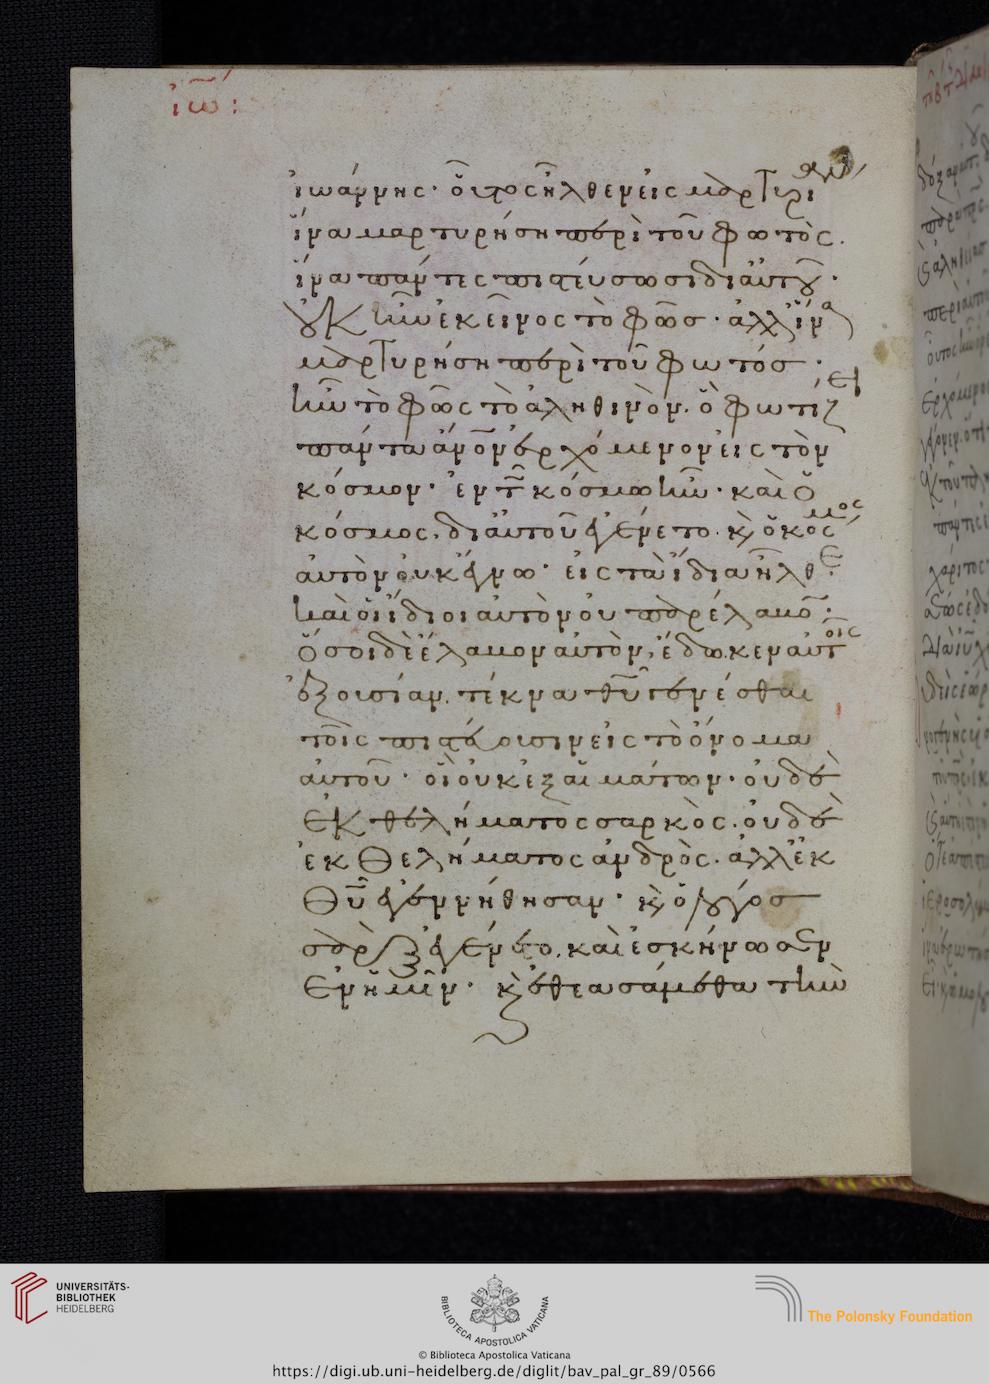 ἰω:
ἰωάννης· οὗτος ἦλθεν εἰς μαρτυρίαν,
ἵνα μαρτυρήση περὶ τοῦ φωτὸς.
ἵνα πάντες πιστεύσωσι δι αὐτοῦ·
οὐκ ἦν ἐκεῖνος τὸ φῶσ· ἀλλ ἵνα
μαρτυρήση περὶ τοῦ φωτόσ·
ἦν τὸ φῶς τὸ ἀληθινὸν. ὃ φωτίζει
πάντα ἄνον ἐρχόμενον εἰς τὸν
κόσμον· ἐν τῶ κόσμω ἦν· καὶ ὁ
κόσμος, δι αὐτοῦ ἐγένετο. κ ὁ κόσμος
αὐτὸν οὐκ ἔγνω· εἰς τὰ ἴδια ἦλθε·
καὶ οἱ ἴδιοι αὐτὸν οὐ παρέλαβον·
ὅσοι δὲ ἔλαβον αὐτὸν, ἔδωκεν αὐτοῖς
ἐξουσίαν, τέκνα θυ γενέσθαι
τοῖς πιστεύουσιν εἰς τὸ ὄνομα
αὐτοῦ· οἳ οὐκ ἐξ αἱμάτων· οὐδὲ
ἐκ θελήματος σαρκὸς. οὐδὲ
ἐκ θελήματος ἀνδρὸς. ἀλλ ἐκ
θυ ἐγεννήθησαν· κ ὁ λόγος
σὰρξ ἐγένετο, καὶ ἐσκήνωσεν
ἐν ἡμῖν· κ ἐθεασάμεθα τὴν
UNIVERSITÄTS-
BIBLIOTHEK
HEIDELBERG
BIBLIOTECA APOSTOLICA VATICANA
The Polonsky Foundation
© Biblioteca Apostolica Vaticana
https://digi.ub.uni-heidelberg.de/diglit/bav_pal_gr_89/0566